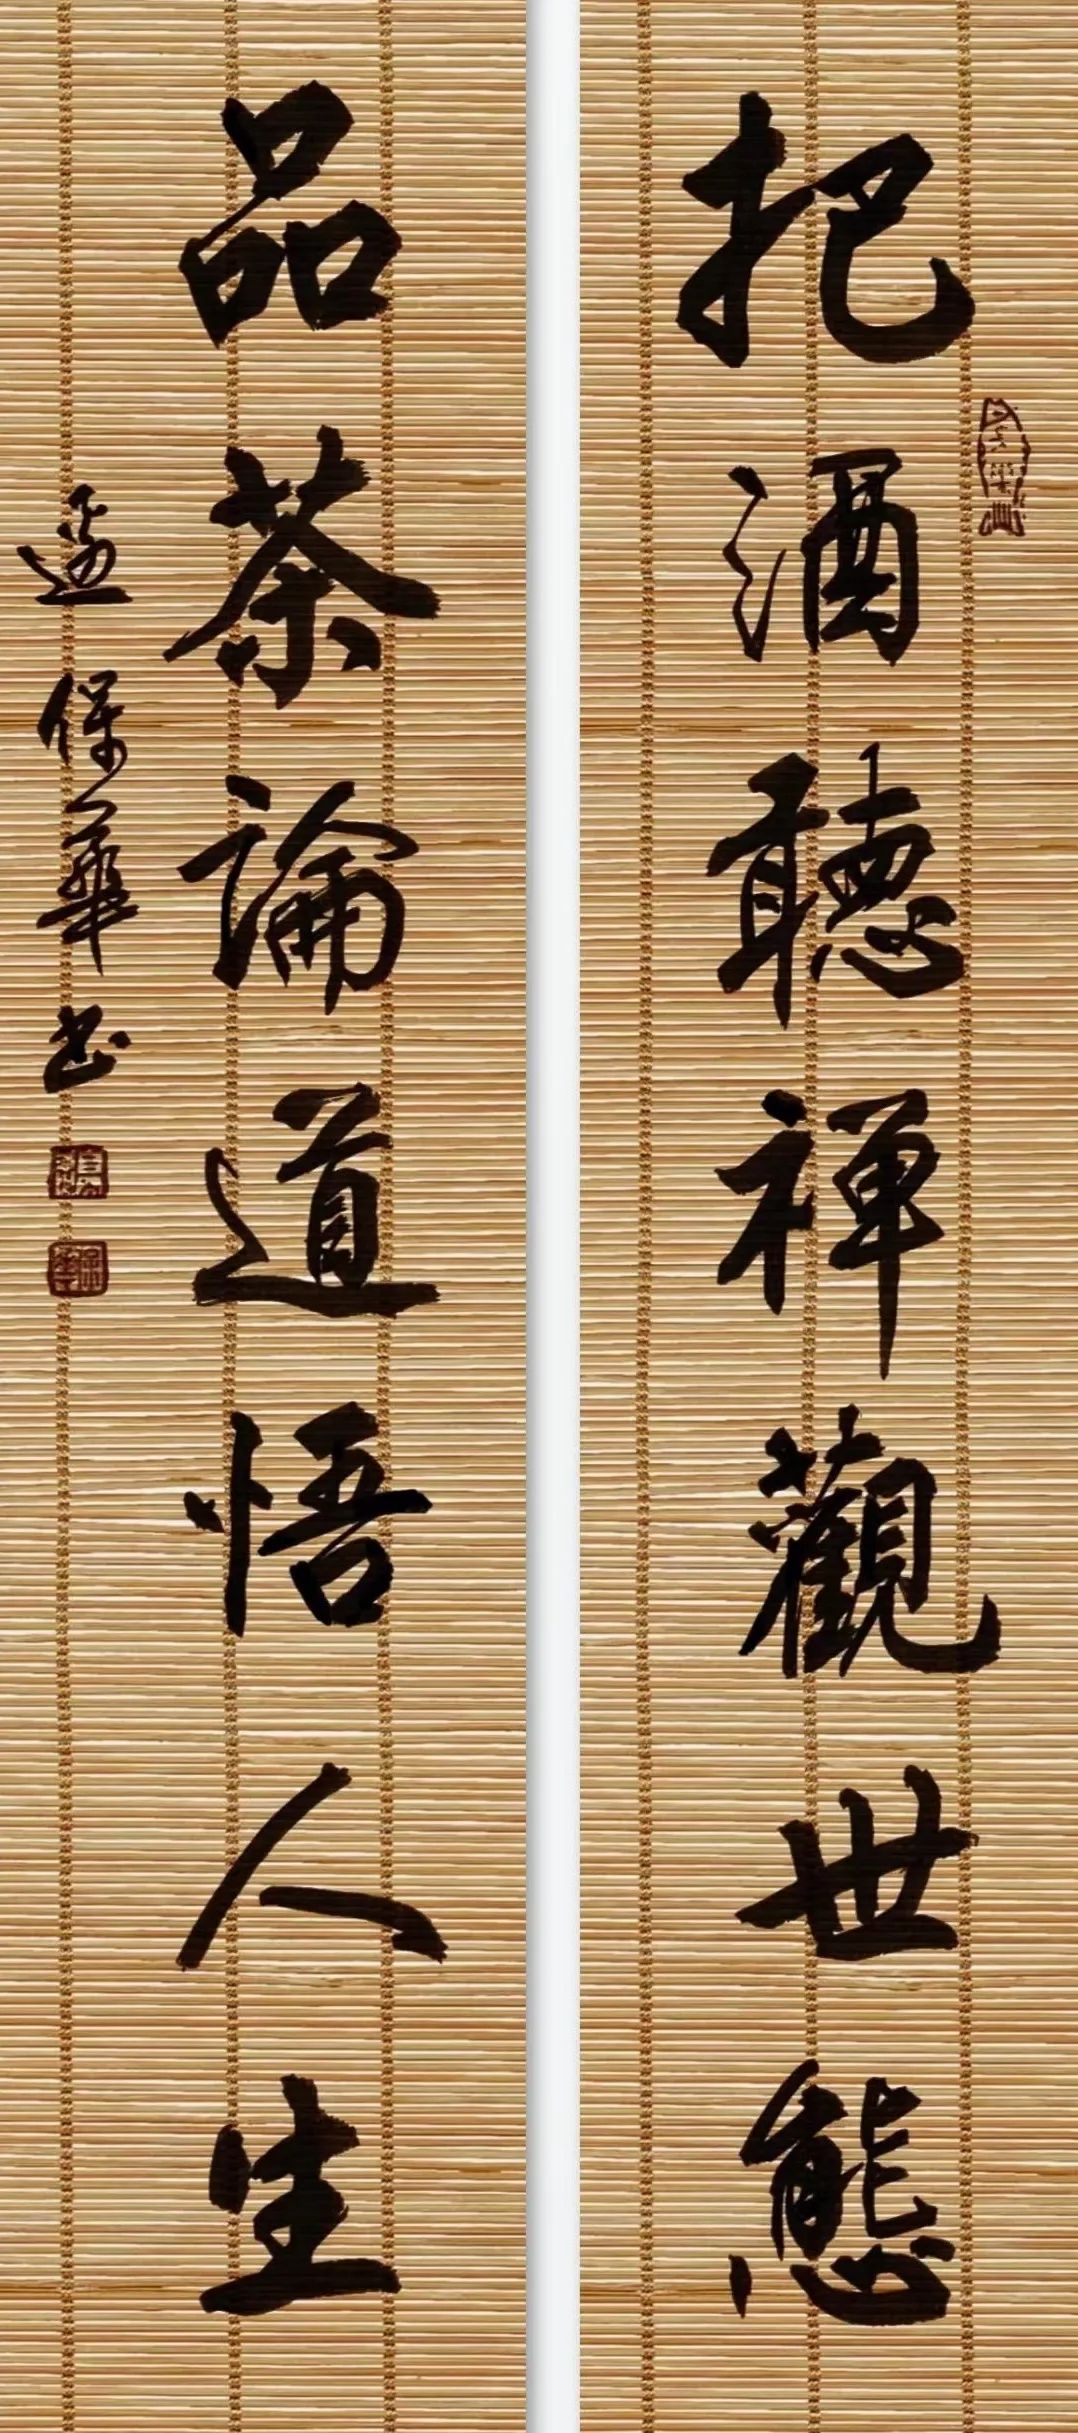 把酒聽禅觀世態
品茶論道悟人生
保華书